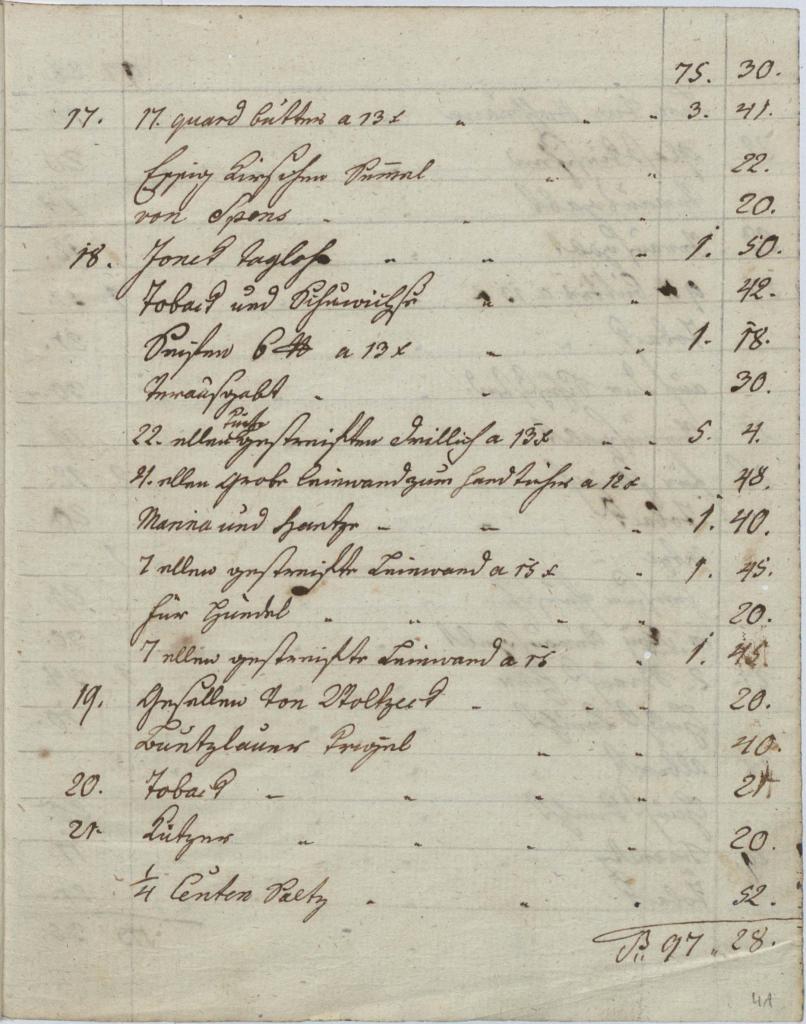 75. 30.
17. 17. quard butter a 13 x 3. 41.
Essig Kirschen Semmel 22.
von Spens 20.
18. Taglohn 1. 50.
Toback und Schuwichse 42.
Seiffen 6 ℔ a 13 x 1. 18.
Verausgabt 30.
22. ellen gestreiften Drillich a 13 x 5. 4.
4. ellen Grobe Leinwand zum Handtücher a 12 x 48.
Marina und 1. 40.
7 ellen gestreifte Leinwand a 15 x 1. 45.
für 20.
7 ellen gestreifte Leinwand a 15 1. 45.
19. Gesellen von 20.
Buntzlauer 40.
20. Toback 21
21. Kutzer 20.
1/4 Centen Saltz 52.
97 28.
41